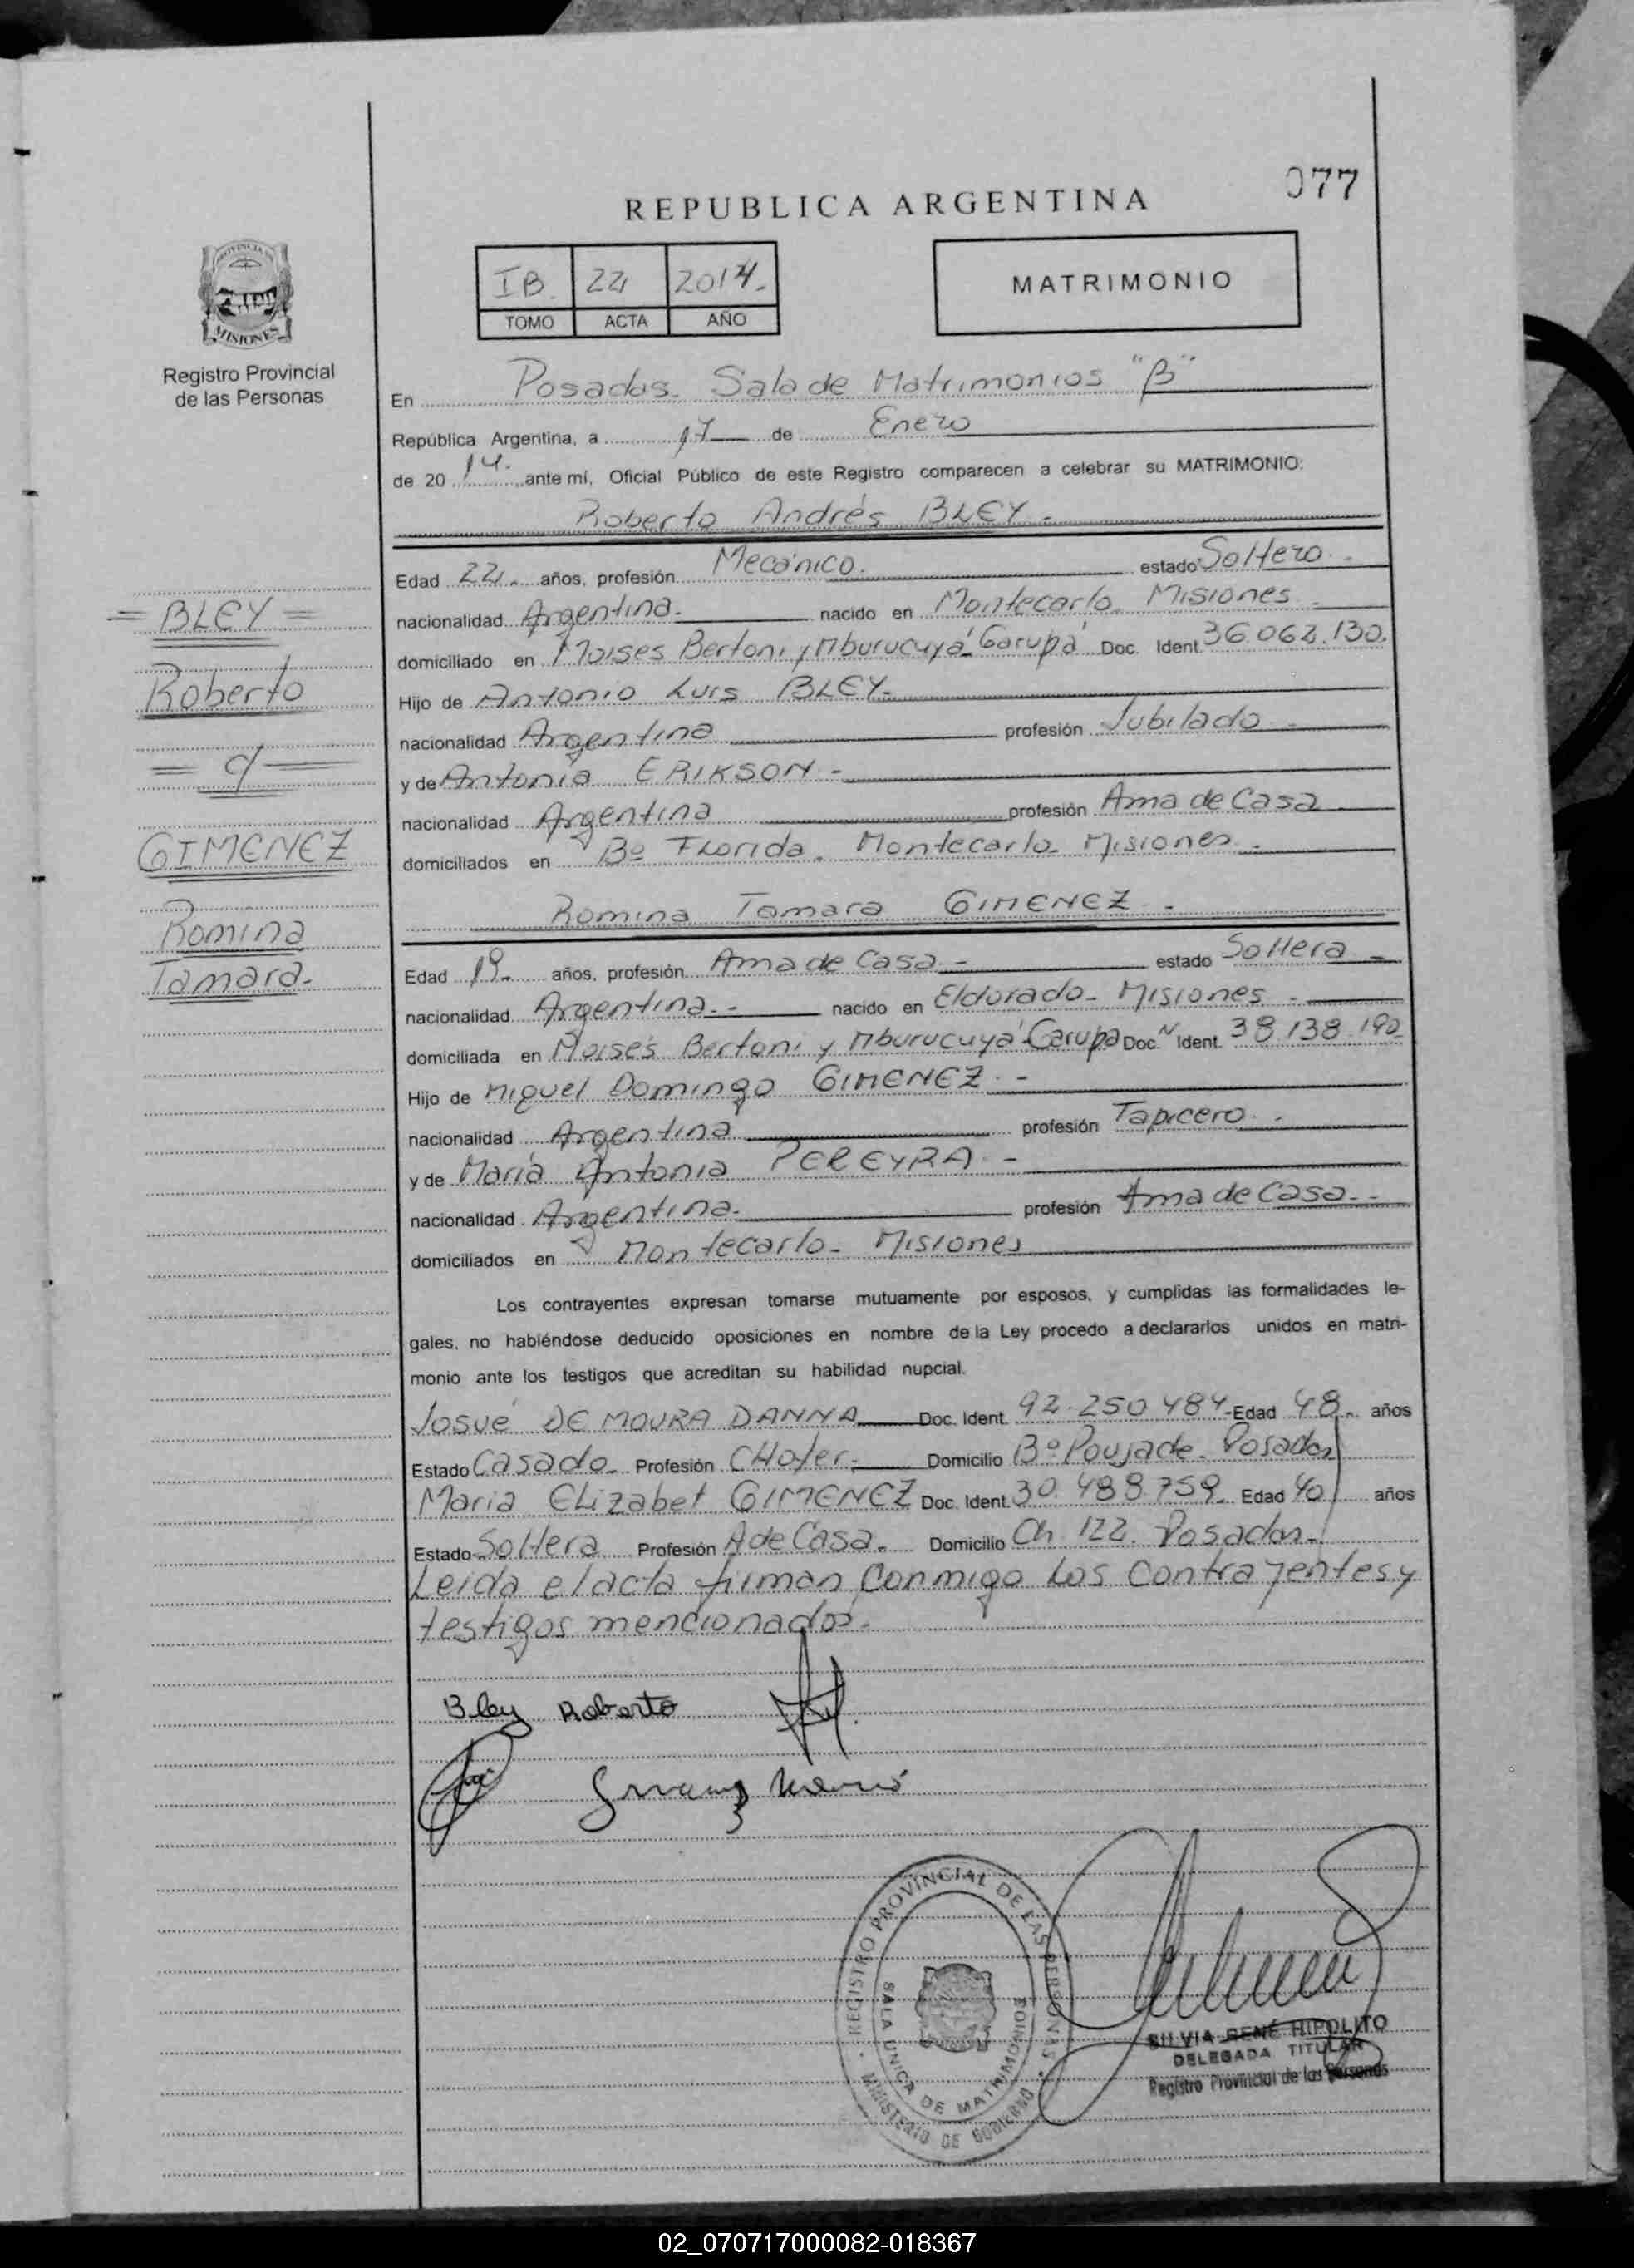 077
REPUBLICA ARGENTINA
IB 22 2014.
TOMO ACTA AÑO
MATRIMONIO
PROVINCIA DE
MISIONES
Registro Provincial
de las Personas
En Posadas. Sala de Matrimonios "B"
República Argentina, a 17 de Enero
de 20 14. ante mí, Oficial Público de este Registro comparecen a celebrar su MATRIMONIO:
Roberto Andrés BLEY.-
Edad 22. años, profesión Mecánico. estado Soltero.-
nacionalidad Argentina.- nacido en Montecarlo Misiones
domiciliado en Moises Bertoni y Mburucuyá Garupá Doc. Ident. 36.062.130.
Hijo de Antonio Luis BLEY.-
nacionalidad Argentina profesión Jubilado -
y de Antonia ERIKSON -
nacionalidad Argentina profesión Ama de Casa
domiciliados en Bº Florida. Montecarlo. Misiones -
Romina Tamara GIMENEZ -
Edad 19. años, profesión Ama de Casa - estado Soltera -
nacionalidad Argentina.- nacido en Eldorado - Misiones -
domiciliada en Moisés Bertoni y Mburucuyá-Garupa Doc. N Ident. 38.138.190
Hijo de Miguel Domingo GIMENEZ.-
nacionalidad Argentina profesión Tapicero.-
y de Maria Antonia PEREYRA.-
nacionalidad Argentina. profesión Ama de Casa.-
domiciliados en Montecarlo- Misiones
Los contrayentes expresan tomarse mutuamente por esposos, y cumplidas las formalidades le-
gales, no habiéndose deducido oposiciones en nombre de la Ley procedo a declararlos unidos en matri-
monio ante los testigos que acreditan su habilidad nupcial.
Josué DE MOURA DANNA Doc. Ident. 92.250.484- Edad 48. años
Estado Casado. Profesión CHofer. Domicilio Bº Poujade. Posadas
Maria Elizabet GIMENEZ Doc. Ident. 30.488.759. Edad 40 años
Estado Soltera Profesión A de Casa. Domicilio Ch. 122. Posadas.
Leida el acta firman conmigo Los contrayentes y
testigos mencionados.
= BLEY =
Roberto
= c/ =
GIMENEZ
Romina
Tamara.
Bley Roberto
REGISTRO PROVINCIAL DE LAS PERSONAS
SALA UNICA DE MATRIMONIOS
MINISTERIO DE GOBIERNO
SILVIA RENÉ HIPOLITO
DELEGADA TITULAR
Registro Provincial de las Personas
02_070717000082-018367